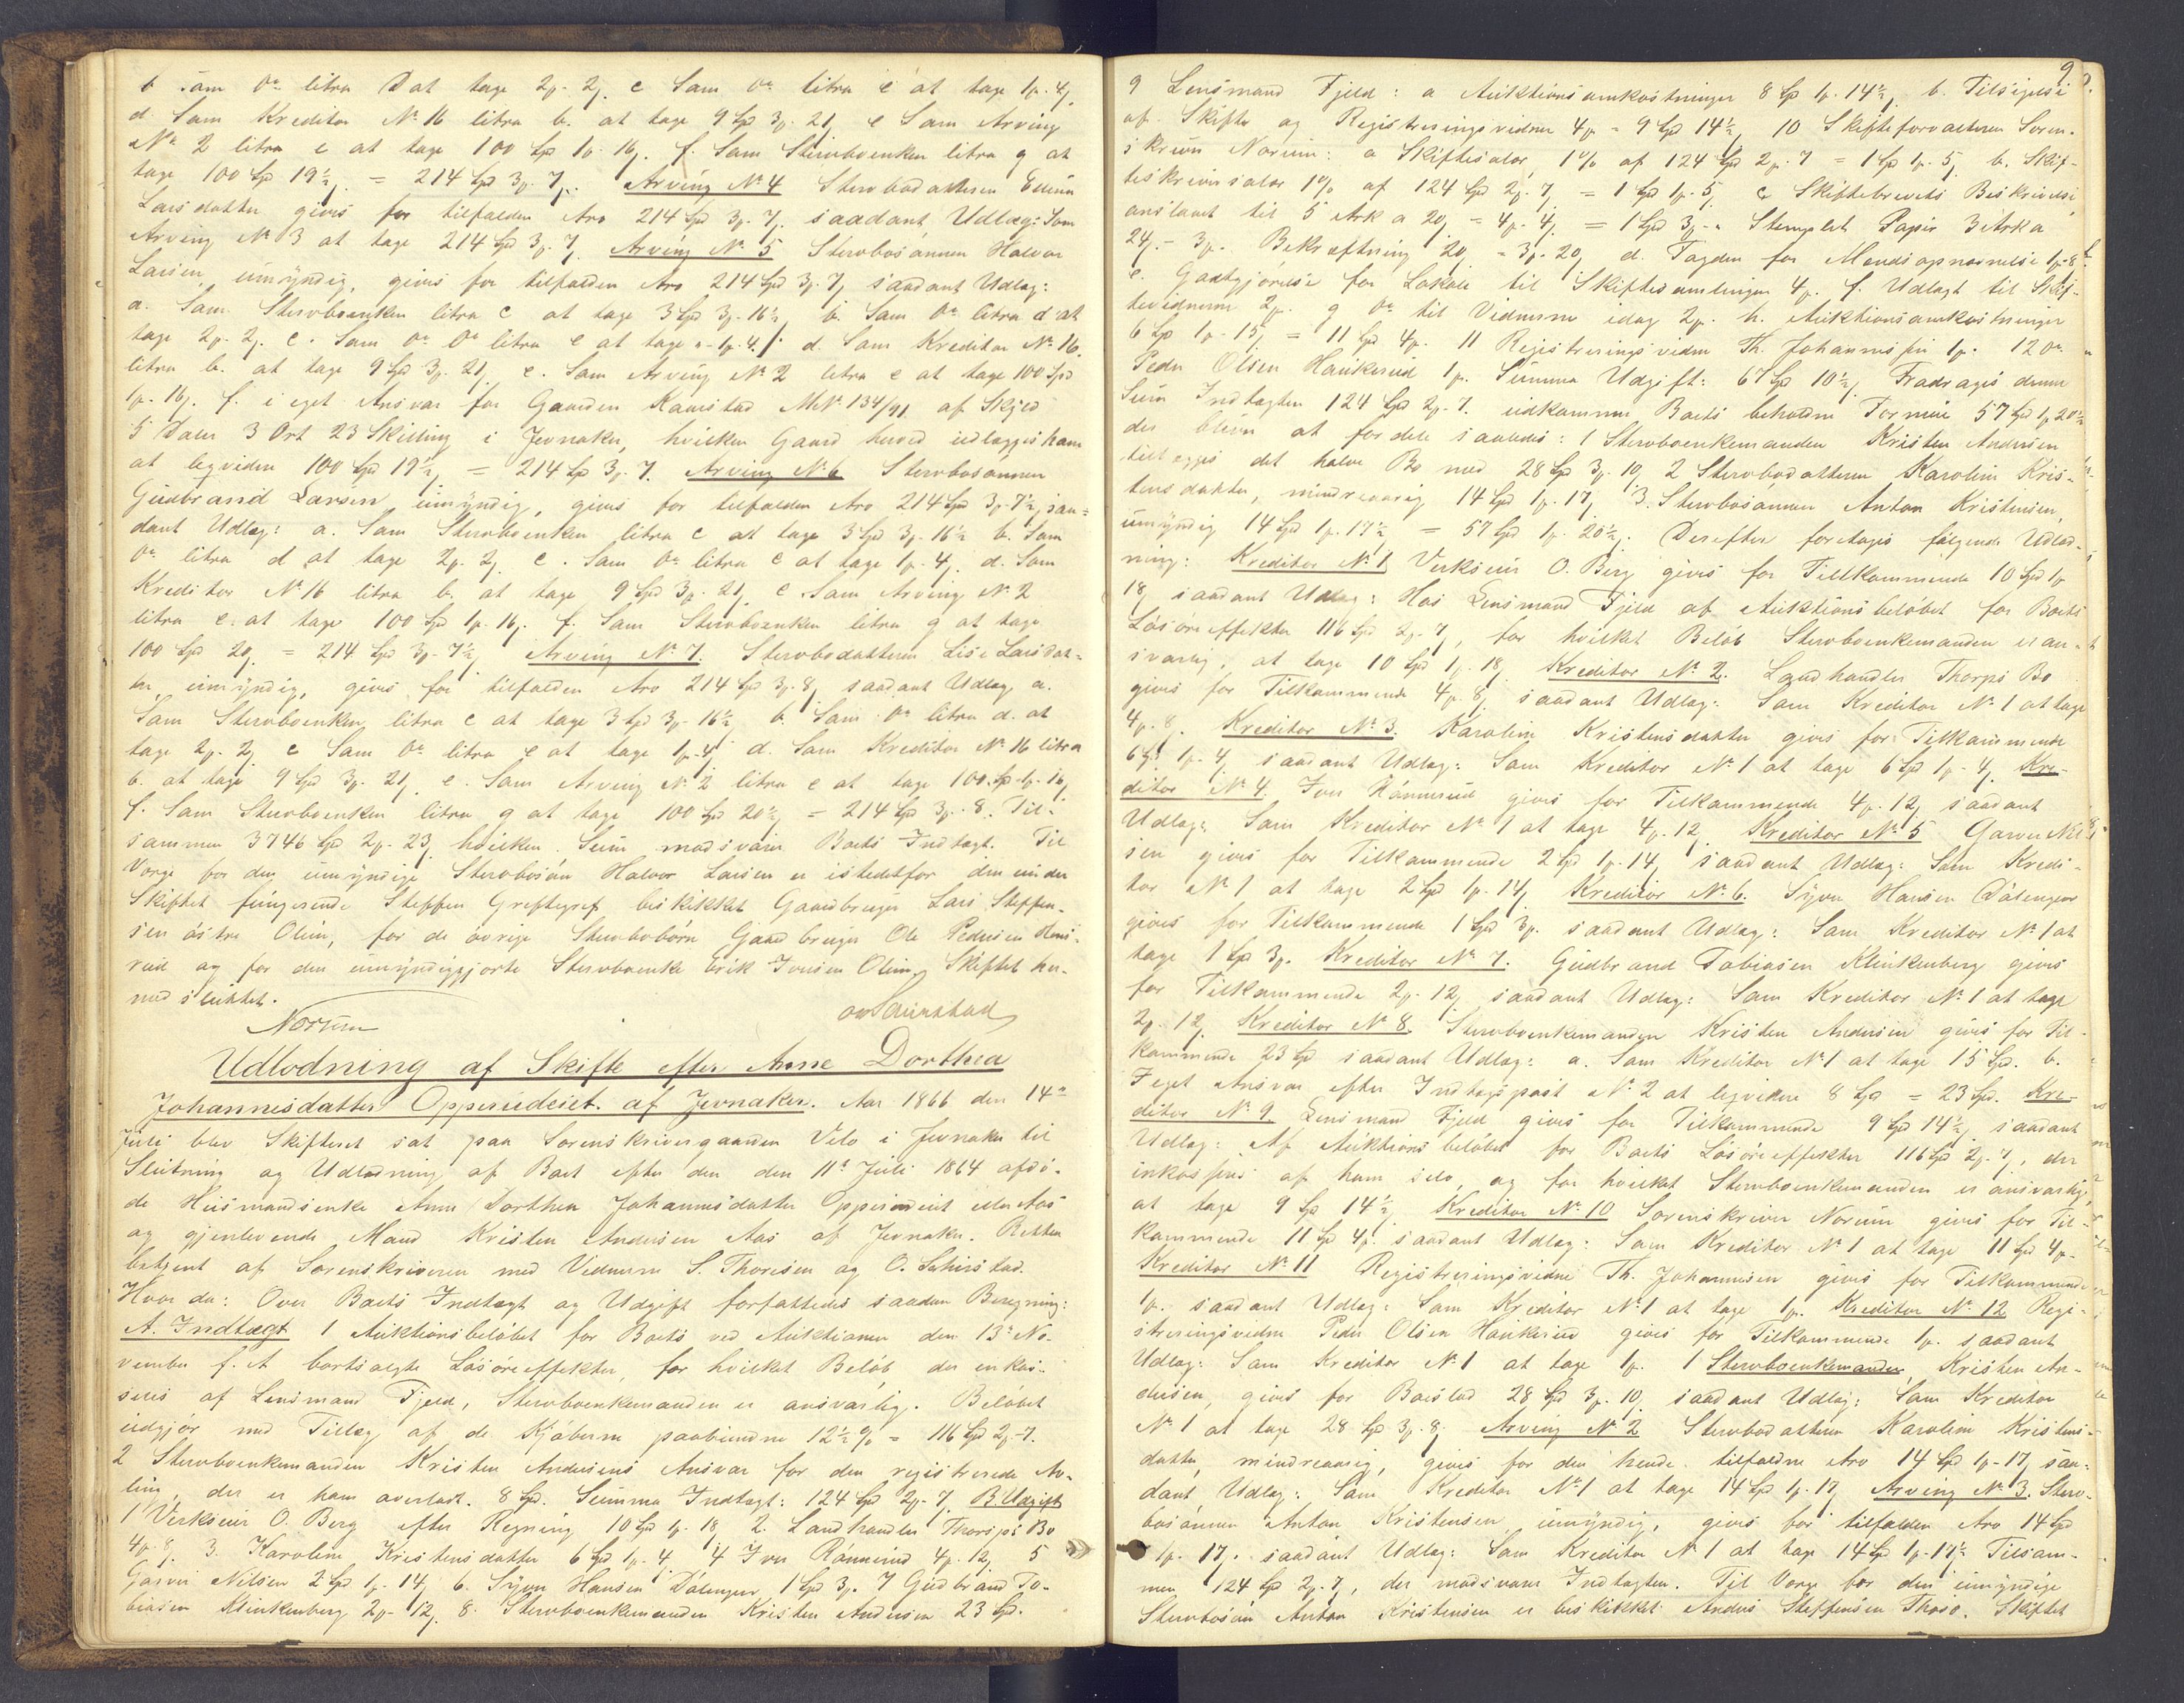 b. Som Do litra d at tage 2 - 2 c Som Do litra e at tage 1 - 4
d. Som Kreditor No 16 litra b. at tage 9 Spd 3 - 21 e Som Arving
No 2 litra e at tage 100 Spd 1 - 16. f. Som Stervboenken litra g at
tage 100 Spd 19½ = 214 Spd 3 - 7. Arving No 4 Stervbodatteren
Larsdatter gives for tilfalden Arv 214 Spd 3 - 7. saadant Udlæg: Som
Arving No 3 at tage 214 Spd 3 - 7. Arving No 5 Stervbosønnen Halvor
Larsen, umyndig, gives for tilfalden Arv 214 Spd 3 - 7 saadant Udlæg:
a. Som Stervboenken litra c at tage 3 Spd 3 - 16½ b. Som Do litra d at
tage 2 - 2. c. Som Do Do litra e at tage 1 - 4. d. Som Kreditor No 16
litra b. at tage 9 Spd 3 - 21 e. Som Arving No 2 litra e at tage 100 Spd
1 - 16. f. i eget Ansvar for Gaarden Kamstad MN 134/91 af Skyld
5 Daler 3 Ort 23 Skilling i Jevnaker, hvilken Gaard herved udlægges ham
at ligvidere 100 Spd 19½ = 214 Spd 3 - 7. Arving No 6 Stervbosønnen
Gudbrand Larsen umyndig, gives for tilfalden Arv 214 Spd 3 - 7½, saa-
dant Udlæg: a. Som Stervboenken litra c at tage 3 Spd 3 - 16½ b. Som
Do litra d at tage 2 - 2. c. Som Do litra e at tage 1 - 4. d. Som
Kreditor No 16 litra b. at tage 9 Spd 3 - 21 e Som Arving No 2
litra e at tage 100 Spd 1 - 16. f. Som Stervboenken litra g at tage
100 Spd 20 = 214 Spd 3 - 7½ Arving No 7. Stervbodatteren Lise Larsdat-
ter, umyndig, gives for tilfalden Arv 214 Spd 3 - 8 saadant Udlæg a.
Som Stervboenken litra c at tage 3 Spd 3 - 16½ b. Som Do litra d. at
tage 2 - 2 c Som Do litra e at tage 1 - 4 d. Som Kreditor No 16 litra
b. at tage 9 Spd 3 - 21. e. Som Arving No 2 litra e at tage 100 Spd 1 - 16
f. Som Stervboenken litra g at tage 100 Spd 20½ = 214 Spd 3 - 8. Til-
sammen 3746 Spd 2 - 23 hvilken Sum modsvarer Boets Indtægt. Til
Værge for den umyndige Stervbosøn Halvor Larsen er istedetfor den under
Skiftet fungerende Steffen Greftegref beskikket Gaardbruger Lars Steffen-
sen østre Olum, for de øvrige Stervbobørn Gaardbruger Ole Pedersen
rud og for den umyndiggjorte Stervboenke Erik Iversen Olum. Skiftet her-
med sluttet.
Norum
Udlodning af Skifte efter Anne Dorthea
Johannesdatter Opperudeiet af Jevnaker. Aar 1866 den 14de
Juli blev Skifteret sat paa Sorenskrivergaarden Velo i Jevnaker til
Slutning og Udlodning af Boet efter den den 11te Juli 1864 afdø-
de Huusmandsenke Anne Dorthea Johannesdatter Opperudeiet eller Aas
og gjenlevende Mand Kristen Andersen Aas af Jevnaker. Retten
betjent af Sorenskriveren med Vidnerne S. Thoresen og O. Sehirstad.
Hvor da: Over Boets Indtægt og Udgift forfattedes saadan Beregning:
A. Indtægt 1 Auktionsbeløbet for Boets ved Auktionen den 13de No-
vember f. A bortsolgte Løsøreeffekter, for hvilket Beløb der inkas-
seres af Lensmand Fjeld, Stervboenkemanden er ansvarlig. Beløbet
udgjør med Tillæg af de Kjøberne paabudne 12½ % = 116 Spd 2 - 7.
2 Stervboenkemanden Kristen Andersens Ansvar for den registrerede Av-
ling, der er ham overladt. 8 Spd. Summa Indtægt: 124 Spd 2 - 7 B. Udgift
1 Verkseier O. Berg efter Regning 10 Spd 1 - 18 2. Landhandler Thorps Bo
4 - 8. 3. Karoline Kristensdatter 6 Spd 1 - 4 4 Iver Rønnerud 4 - 12 5
Garver Nilsen 2 Spd 1 - 14 6. Syver Hansen Dølengen 1 Spd 3. 7 Gudbrand To-
biasen Klinkenberg 2 - 12 8. Stervboenkemanden Kristen Andersen 23 Spd.
9
9 Lensmand Fjeld: a Auktionsomkostninger 8 Spd 1 - 14½ b. Tilsigelse
af Skifte og Registreringsvidner 4 = 9 Spd 14½ 10 Skifteforvalteren Soren-
skriver Norum: a Skiftesalær 1% af 124 Spd 2 - 7 = 1 Spd 1 - 5 b. Skif-
teskriversalær 1% af 124 Spd 2 - 7 = 1 Spd 1 - 5 c Skiftebrevets Beskrivelse
anslaaet til 5 Ark a 20 = 4 - 4 = 1 Spd 3 - Stemplet Papir 3 Ark a
24 - 3. Bekræftning 20 = 3 - 20 d. Fogden for Mændsopnævnelse 1 - 8
e. Godtgjørelse for Lokale til Skiftesamlinger 4. f. Udlagt til Skif-
tevidnerne 2. g Do til Vidnerne idag 2. h. Auktionsomkostninger
6 Spd 1 - 15 = 11 Spd 4. 11 Registreringsvidne Th. Johannessen 1. 12 Do
Peder Olsen Haukerud 1. Summa Udgift: 67 Spd 10½. Fradrages denne
Sum Indtægten 124 Spd 2 - 7. udkommer Boets beholdne Formue 57 Spd 1 - 20½
der bliver at fordele saaledes: 1 Stervboenkemanden Kristen Andersen
tillægges det halve Bo med 28 Spd 3 - 10 2 Stervbodatteren Karoline Kris-
tensdatter, mindreaarig 14 Spd 1 - 17 3. Stervbosønnen Anton Kristensen,
umyndig 14 Spd 1 - 17½ = 57 Spd 1 - 20½. Derefter foretages følgende Udlod-
ning: Kreditor No 1 Verkseier O. Berg gives for Tilkommende 10 Spd 1
18 saadant Udlæg: Hos Lensmand Fjeld af Auktionsbeløbet for Boets
Løsøreeffekter 116 Spd 2 - 7, for hvilket Beløb Stervboenkemanden er an-
svarlig, at tage 10 Spd 1 - 18. Kreditor No 2. Landhandler Thorps Bo
gives for Tilkommende 4 - 8 saadant Udlæg: Som Kreditor No 1 at tage
4 - 8. Kreditor No 3. Karoline Kristensdatter gives for Tilkommende
6 Spd 1 - 4 saadant Udlæg: Som Kreditor No 1 at tage 6 Spd 1 - 4. Kre-
ditor No 4. Iver Rønnerud gives for Tilkommende 4 - 12 saadant
Udlæg: Som Kreditor No 1 at tage 4 - 12. Kreditor No 5 Garver Nil
sen gives for Tilkommende 2 Spd 1 - 14 saadant Udlæg: Som Kredi-
tor No 1 at tage 2 Spd 1 - 14 Kreditor No 6. Syver Hansen Dølengen
gives for Tilkommende 1 Spd 3. saadant Udlæg: Som Kreditor No 1 at
tage 1 Spd 3. Kreditor No 7. Gudbrand Tobiasen Klinkenberg gives
for Tilkommende 2 - 12 saadant Udlæg: Som Kreditor No 1 at tage
2 - 12. Kreditor No 8. Stervboenkemanden Kristen Andersen gives for Til-
kommende 23 Spd saadant Udlæg: a. Som Kreditor No 1 at tage 15 Spd. b.
I eget Ansvar efter Indtægtspost No 2 at ligvidere 8 Spd = 23 Spd. Kre-
ditor No 9. Lensmand Fjeld gives for Tilkommende 9 Spd 14½ saadant
Udlæg: Af Auktionsbeløbet for Boets Løsøreeffekter 116 Spd 2 - 7, der
inkasseres af ham selv, og for hvilket Stervboenkemanden er ansvarlig,
at tage 9 Spd 14½ Kreditor No 10 Sorenskriver Norum gives for Til-
kommende 11 Spd 4. saadant Udlæg: Som Kreditor No 1 at tage 11 Spd 4 -
Kreditor No 11 Registreringsvidne Th. Johannesen gives for Tilkommende
1. saadant Udlæg: Som Kreditor No 1 at tage 1. Kreditor No 12 Regi-
streringsvidne Peder Olsen Haukerud gives for Tilkommende 1. saadant
Udlæg: Som Kreditor No 1 at tage 1. 1 Stervboenkemanden Kristen An-
dersen, gives for Boeslod 28 Spd 3 - 10 saadant Udlæg: Som Kreditor
No 1 at tage 28 Spd 3 - 8. Arving No 2 Stervbodatteren Karoline Kristens-
datter, mindreaarig, gives for den hende tilfaldne Arv 14 Spd 1 - 17 saa-
dant Udlæg: Som Kreditor No 1 at tage 14 Spd 1 - 17 Arving No 3. Sterv-
bosønnen Anton Kristensen umyndig, gives for tilfalden Arv 14 Spd
1 - 17. saadant Udlæg: Som Kreditor No 1 at tage 14 Spd 1 - 17½ Tilsam-
men 124 Spd 2 - 7, der modsvarer Indtægten. Til Værge for den umyndige
Stervbosøn Anton Kristensen er beskikket Anders Steffensen Thoso. Skiftet